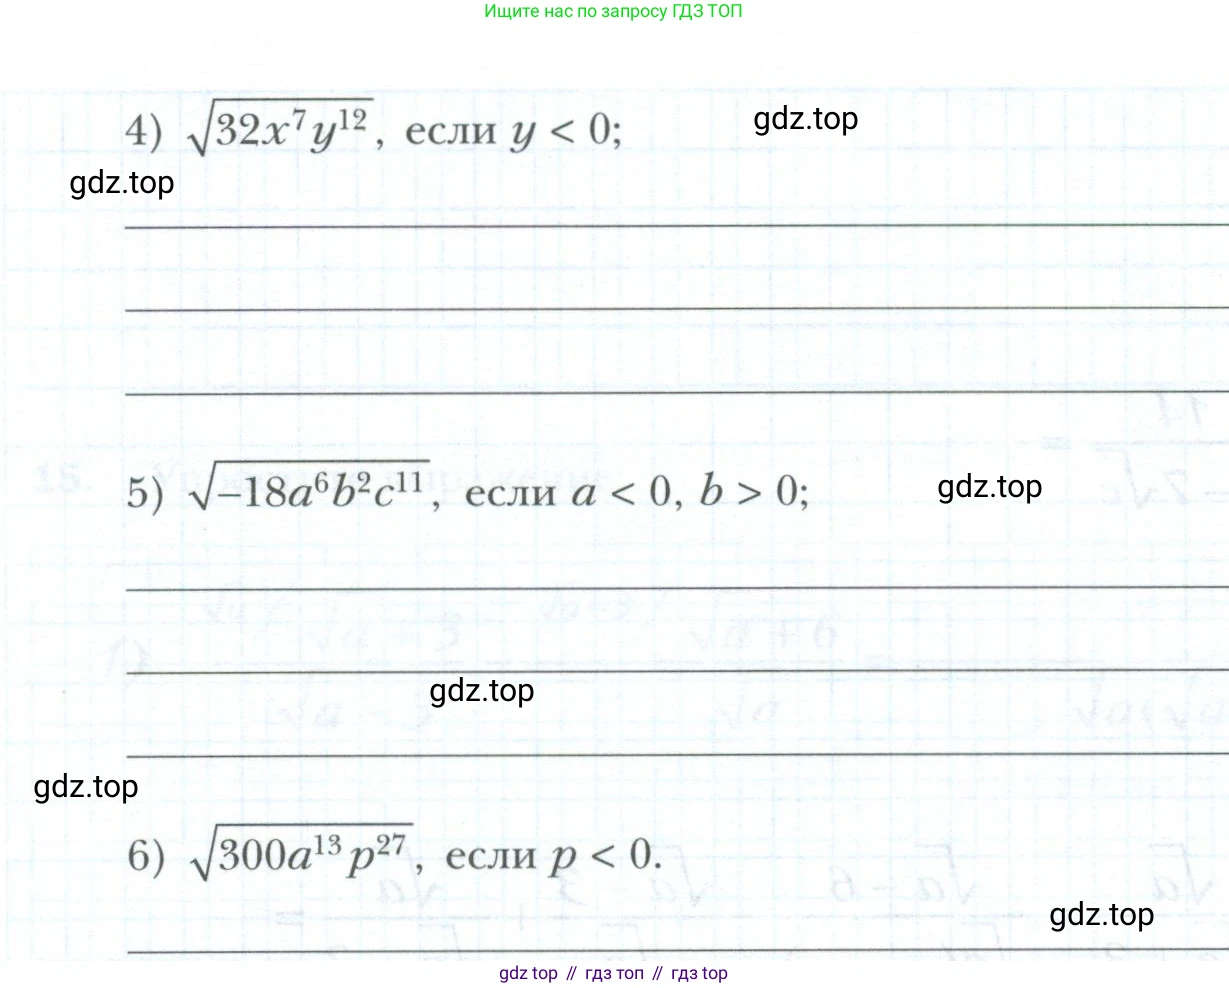 Ищите нас по запросу ГДЗ ТОП
4) √32x⁷y¹², если y < 0;
gdz.top
gdz.top
5) √−18a⁶b²c¹¹, если a < 0, b > 0;
gdz.top
gdz.top
gdz.top
6) √300a¹³p²⁷, если p < 0.
gdz.top
gdz top // гдз топ // гдз top